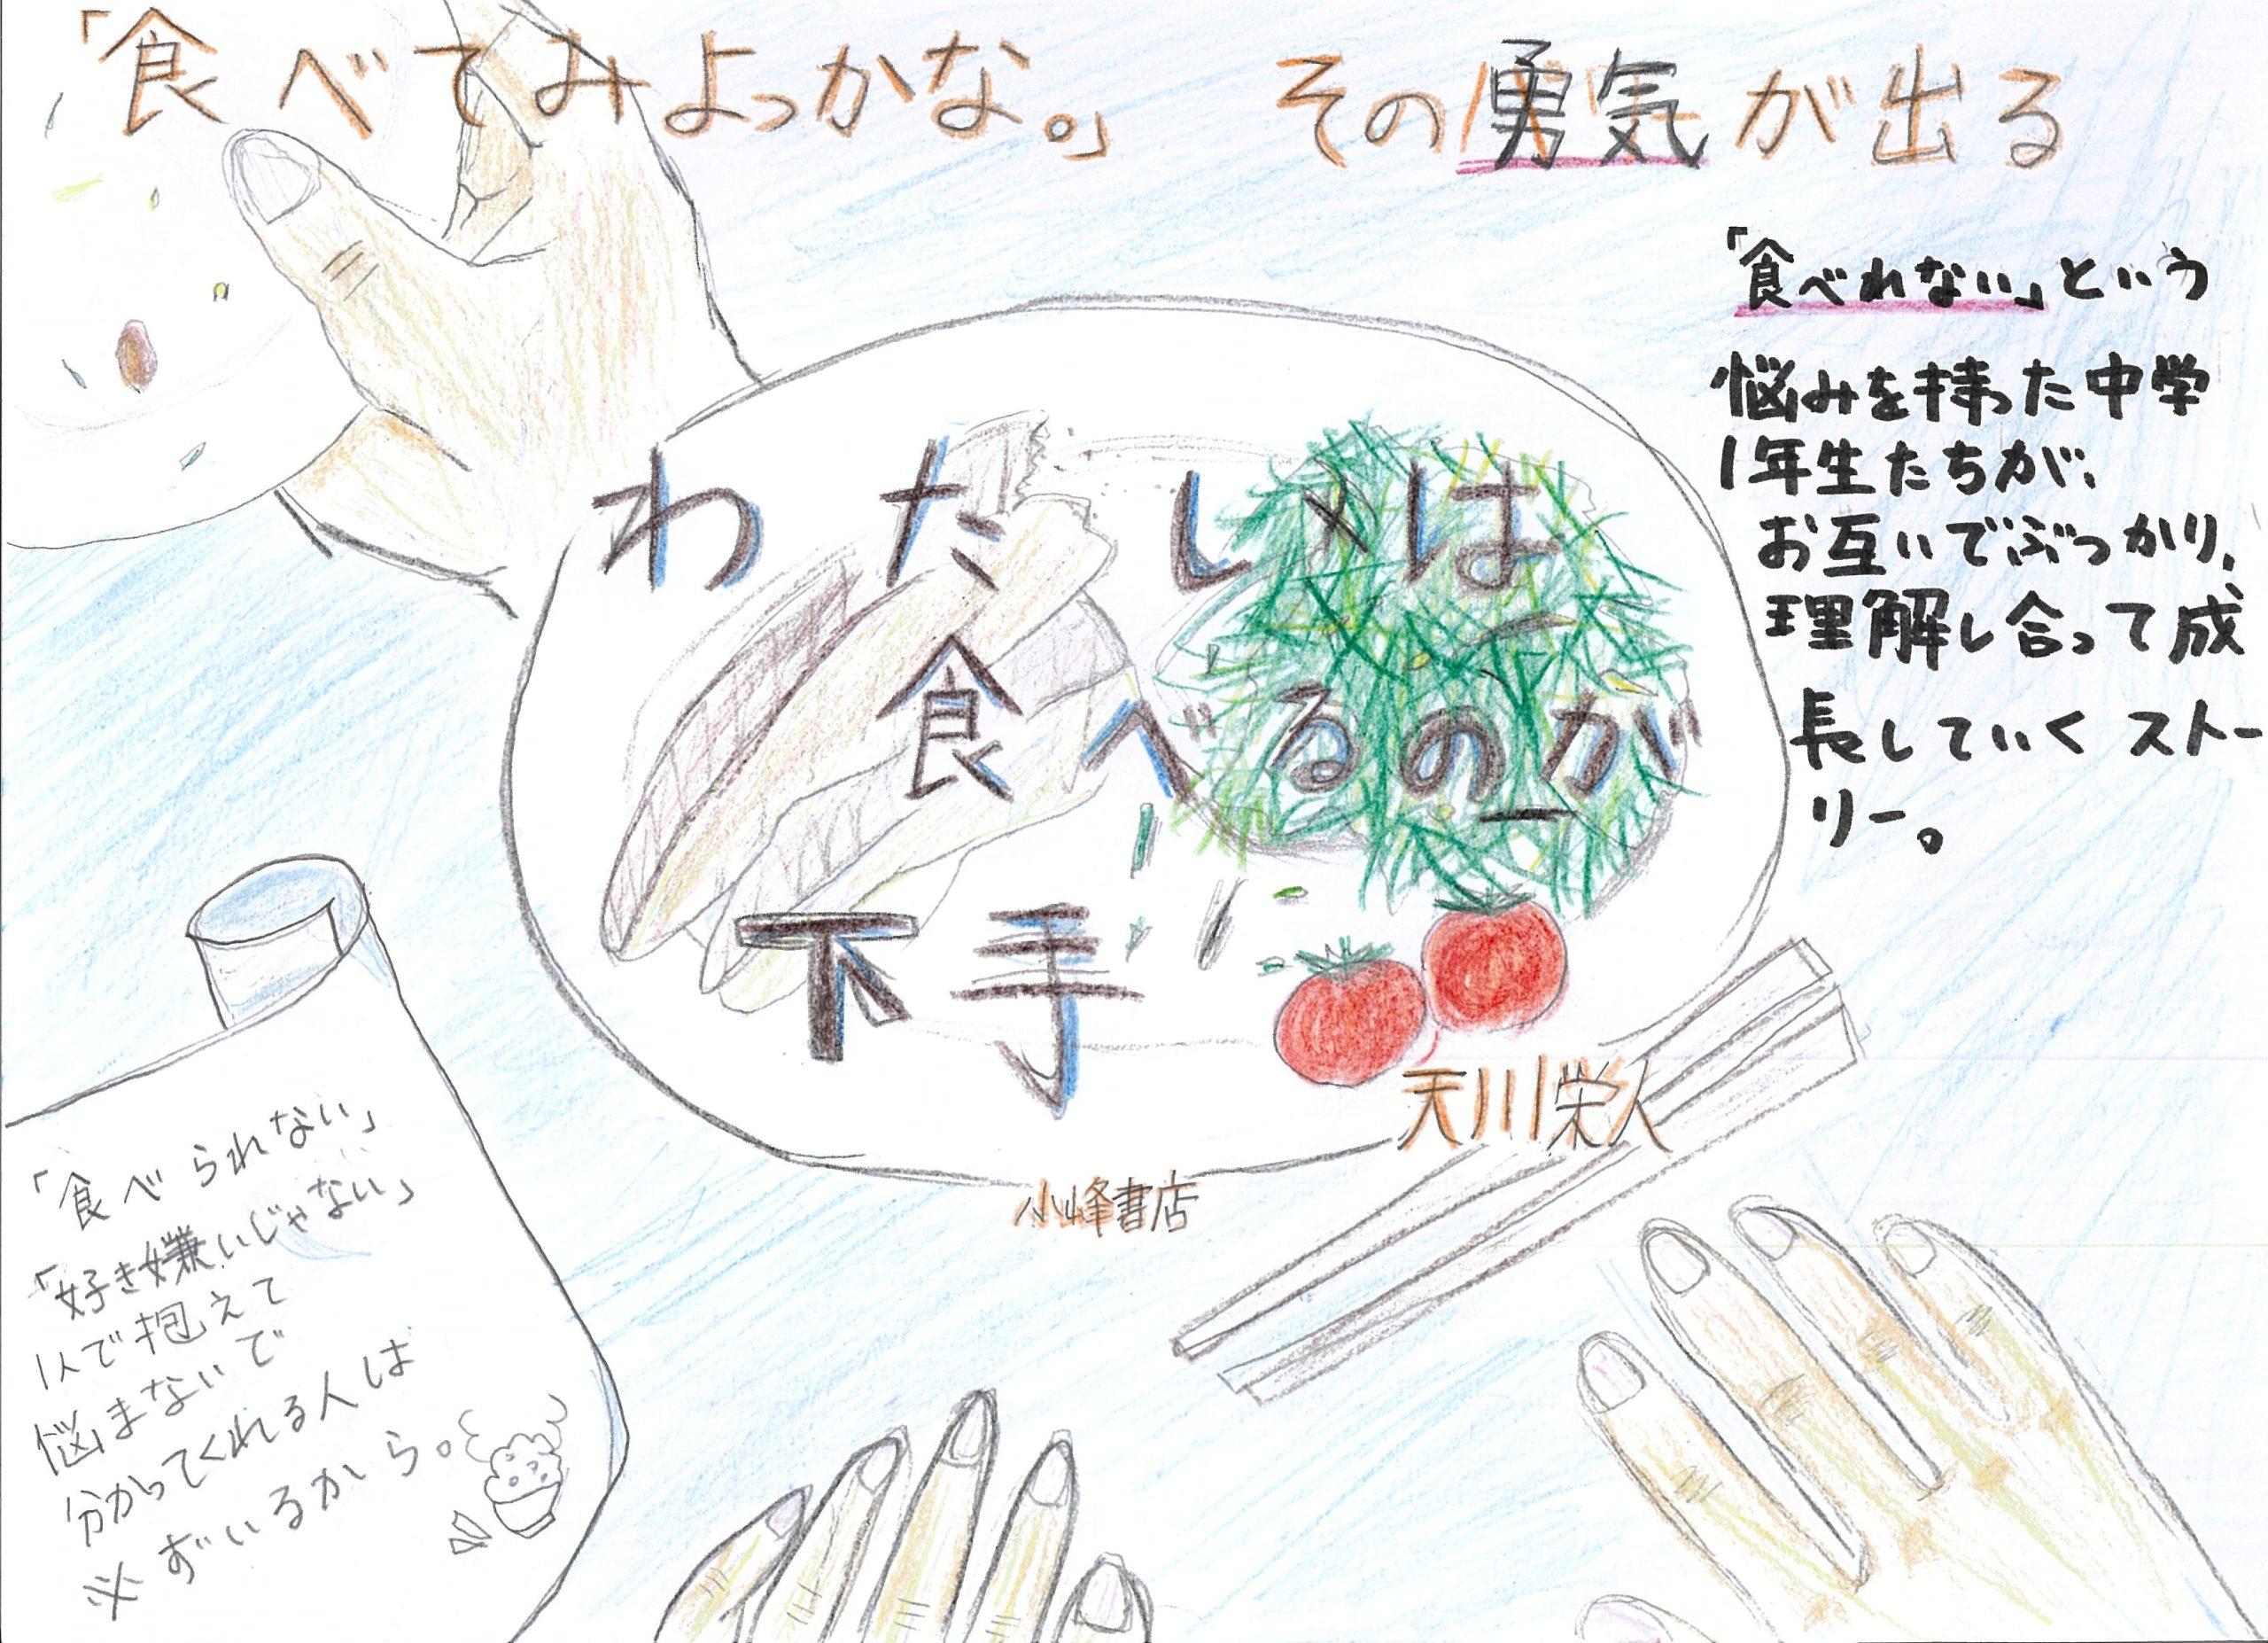 「食べてみよっかな。」 その勇気が出る
「食べれない」という
悩みを持った中学
1年生たちが、
お互いでぶつかり、
理解し合って成
長していくストー
リー。
わたしは
食べるのが
下手
天川栄人
小峰書店
「食べられない」
「好き嫌いじゃない」
1人で抱えて
悩まないで
分かってくれる人は
必ずいるから。